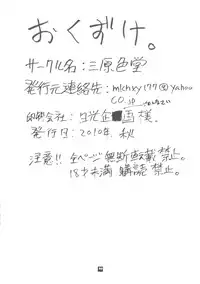 おくずけ。
サークル名：三原色堂
発行元連絡先：mlchxy177@yahoo
co.jp
印刷会社：日光企画様.
発行日：2010年.秋
注意!! 全ページ無断転載禁止。
18才未満 購読禁止。